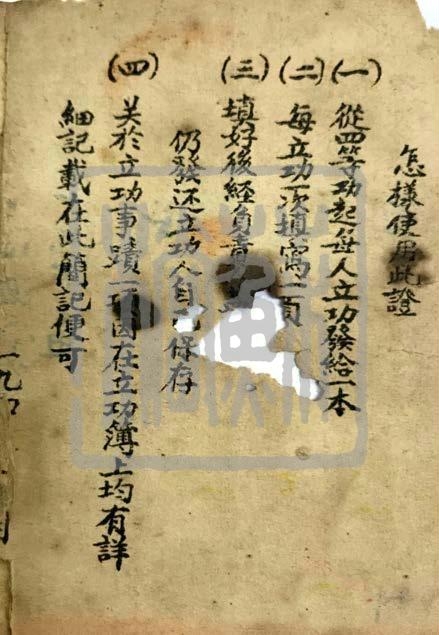 怎樣使用此證
(一) 從四等功起每人立功發給一本
(二) 每立功一次填寫一頁
(三) 填好後經負責
仍發還立功人自己保存
(四) 关於立功事蹟一項因在立功簿上均有詳
細記載在此簡記便可
一九